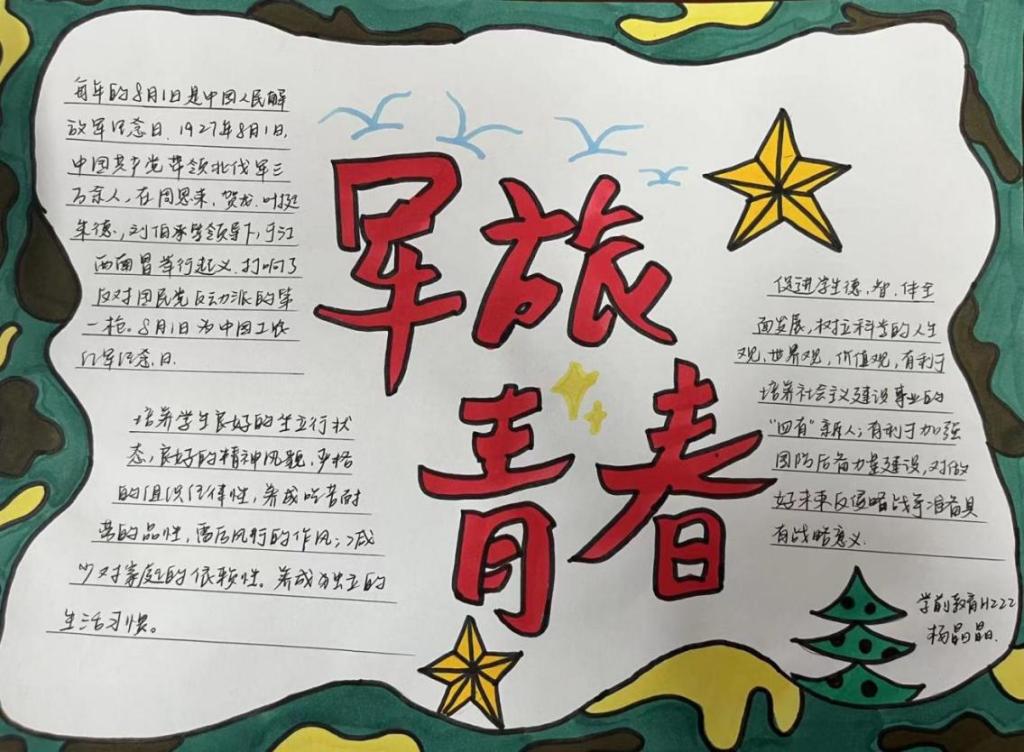 每年的8月1日是中国人民解
放军纪念日.1927年8月1日,
中国共产党带领北伐军三
万余人,在周恩来,贺龙.叶挺
朱德,刘伯承等领导下,于江
西南昌举行起义.打响了
反对国民党反动派的第
一枪。8月1日为中国工农
红军纪念日.
培养学生良好的坐立行状
态,良好的精神风貌.严格
的组织纪律性,养成吃苦耐
劳的品性,雷厉风行的作风;减
少对家庭的依赖性。养成独立的
生活习惯。
军旅
青春
促进学生德.智.体全
面发展,树立科学的人生
观.世界观,价值观,有利于
培养社会主义建设事业的
“四有”新人;有利于加强
国防后备力量建设,对做
好未来反侵略战争准备具
有战略意义.
学前教育H222
杨晶晶.